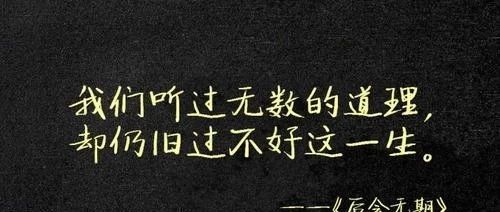 我们听过无数的道理,
却仍旧过不好这一生。
——《后会无期》